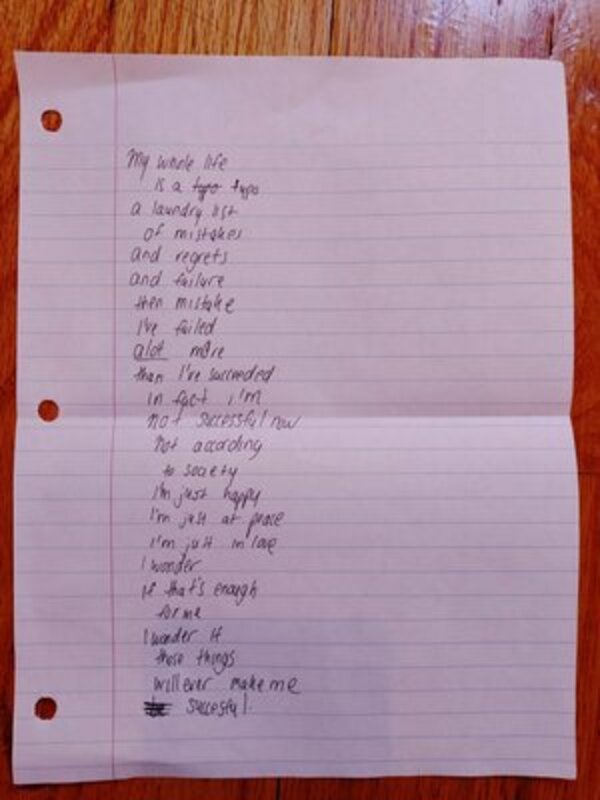 My whole life
is a typo typo
a laundry list
of mistakes
and regrets
and failure
then mistake
I've failed
alot more
than I've succeeded
In fact i'm
not successful now
Not according
to society
I'm just happy
I'm just at peace
I'm just in love
I wonder
if that's enough
for me
I wonder if
those things
will ever make me
succesful.